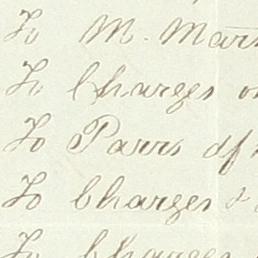 To M. Mars
To Charges o
To Parrs df
To Charges &
To Charges